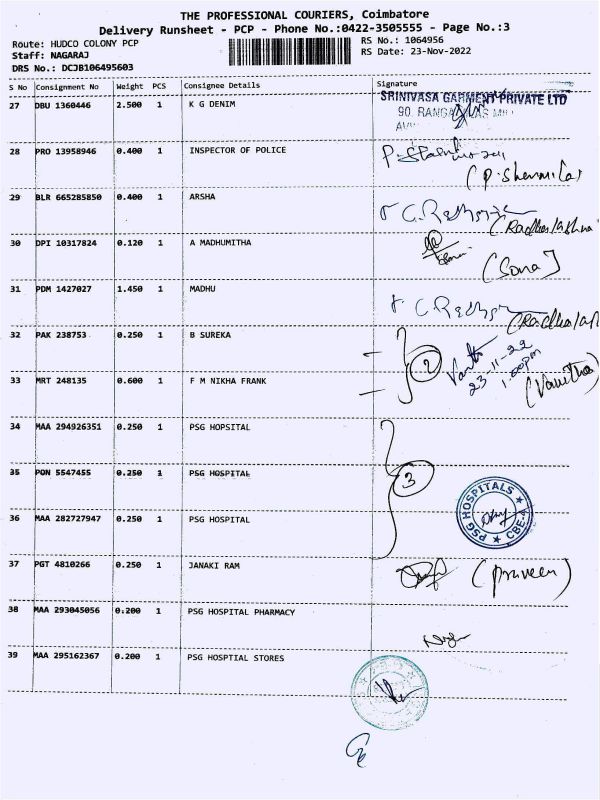 THE PROFESSIONAL COURIERS, Coimbatore
Delivery Runsheet - PCP - Phone No.:0422-3505555 - Page No.:3
Route: HUDCO COLONY PCP RS No.: 1064956
Staff: NAGARAJ RS Date: 23-Nov-2022
DRS No.: DCJB106495603
S No Consignment No Weight PCS Consignee Details Signature
27 DBU 1360446 2.500 1 K G DENIM SRINIVASA GARMENT PRIVATE LTD
90
28 PRO 13958946 0.400 1 INSPECTOR OF POLICE
29 BLR 665285850 0.400 1 ARSHA
30 DPI 10317824 0.120 1 A MADHUMITHA
(Sona)
31 PDM 1427027 1.450 1 MADHU
32 PAK 238753 0.250 1 B SUREKA
2 23-11-22
1.00pm
33 MRT 248135 0.600 1 F M NIKHA FRANK (Vanitha)
34 MAA 294926351 0.250 1 PSG HOPSITAL
35 PON 5547455 0.250 1 PSG HOSPITAL 3
36 MAA 282727947 0.250 1 PSG HOSPITAL PSG HOSPITALS
37 PGT 4810266 0.250 1 JANAKI RAM (praveen)
38 MAA 293045056 0.200 1 PSG HOSPITAL PHARMACY
39 MAA 295162367 0.200 1 PSG HOSPTIAL STORES